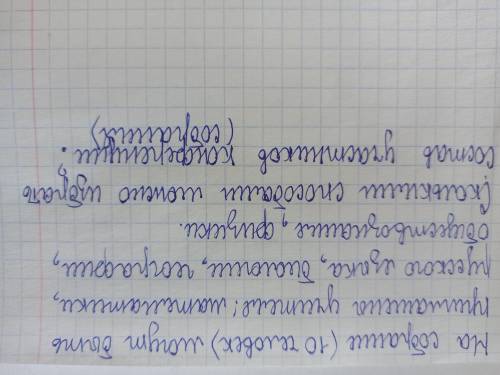 На собрание (10 человек) могут быть
приглашены учителя: математики,
русского языка, биологии, географии,
обществознание, физики.
Сколькими способами можно избрать
состав участников конференции.
(собрания)